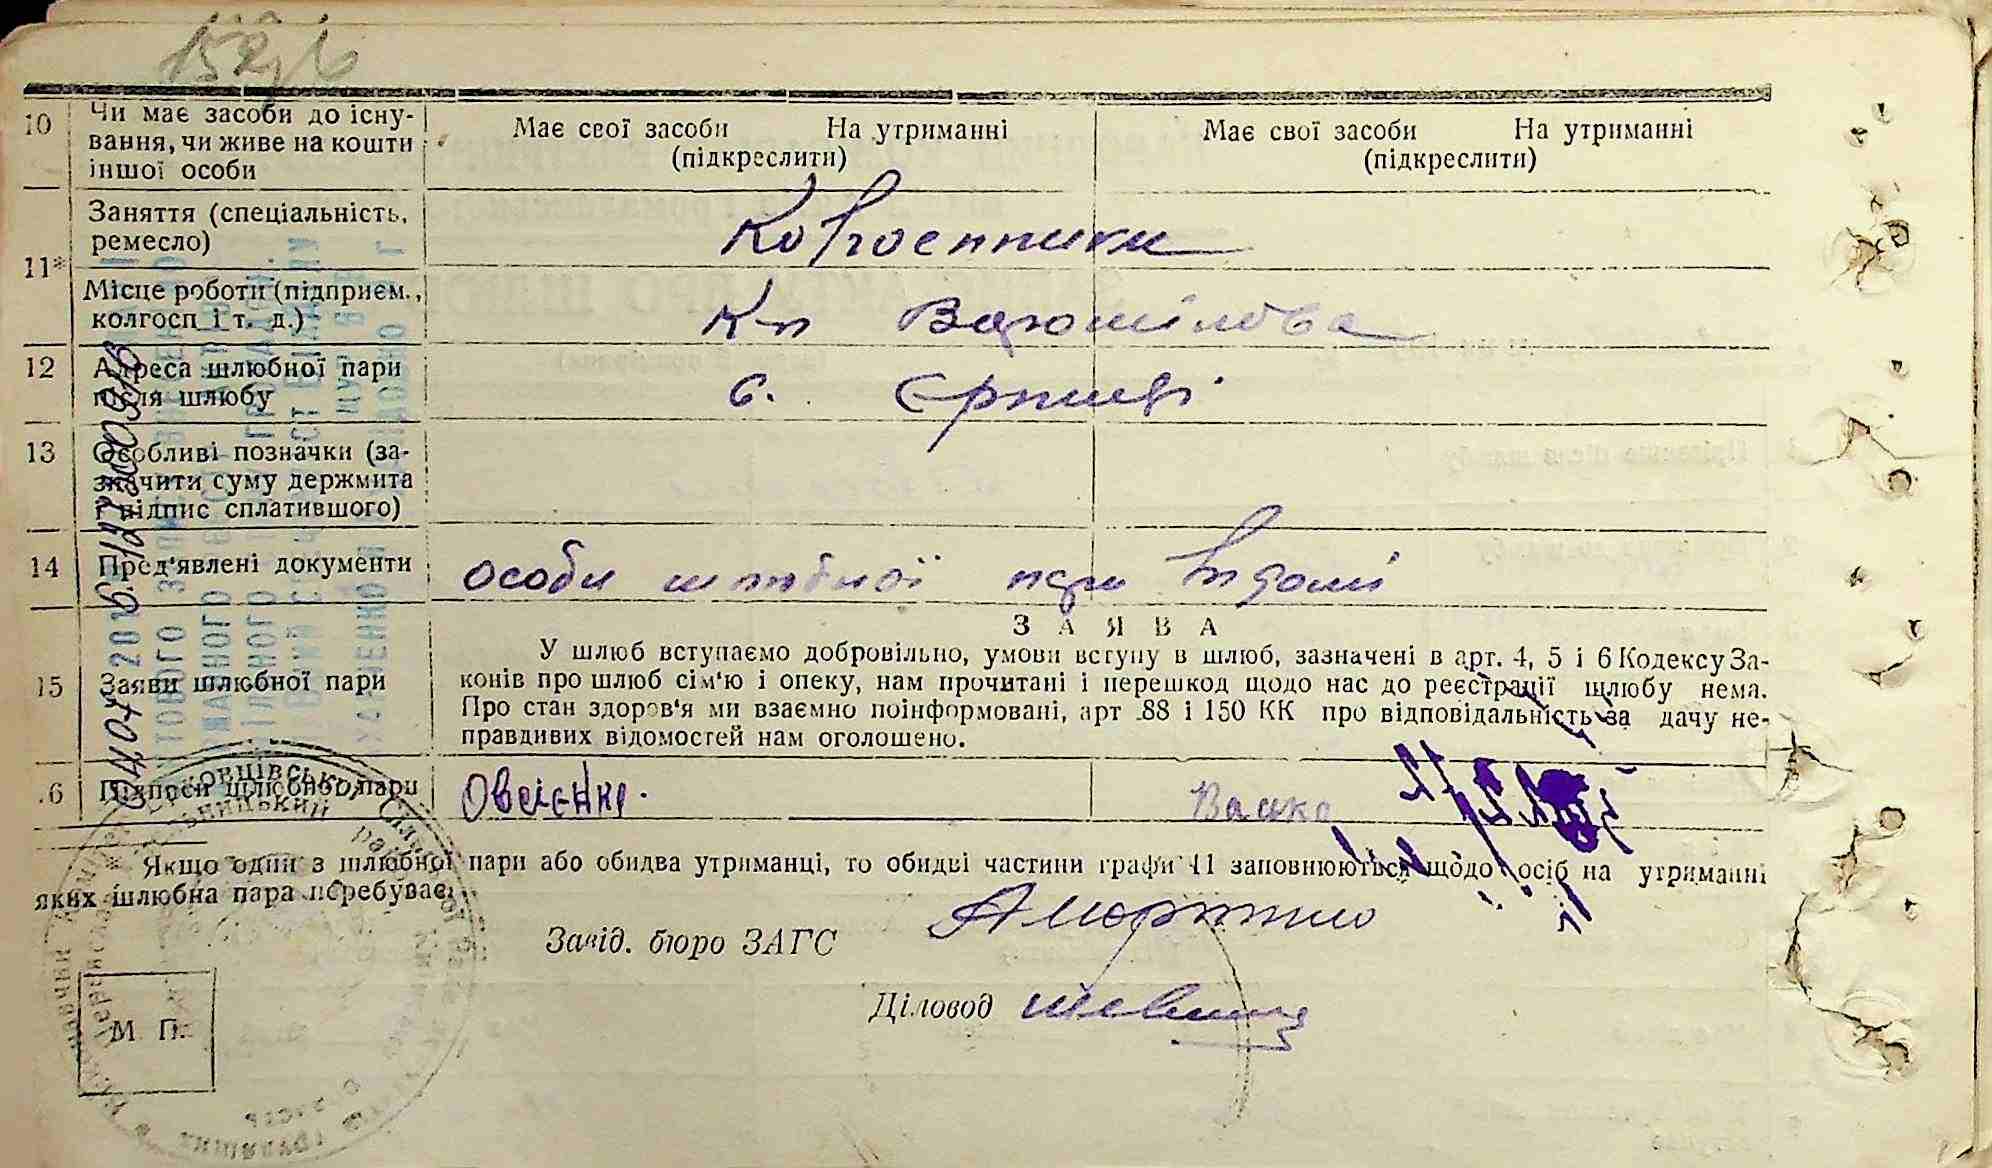 10 Чи має засоби до існу-
вання, чи живе на кошти
іншої особи
Має свої засоби На утриманні
(підкреслити)
Має свої засоби На утриманні
(підкреслити)
11* Заняття (спеціальність,
ремесло)
Колгоспники
Місце роботи (підприєм.,
колгосп і т. д.)
К-п Ворошилова
12 Адреса шлюбної пари
після шлюбу
с.
13 Особливі позначки (за-
значити суму держмита
і підпис сплатившого)
14 Пред'явлені документи
особи шлюбної пари відомі
ЗАЯВА
15 Заяви шлюбної пари
У шлюб вступаємо добровільно, умови вступу в шлюб, зазначені в арт. 4, 5 і 6 Кодексу За-
конів про шлюб сім'ю і опеку, нам прочитані і перешкод щодо нас до реєстрації шлюбу нема.
Про стан здоров'я ми взаємно поінформовані, арт .88 і 150 КК про відповідальність за дачу не-
правдивих відомостей нам оголошено.
.6 Підписи шлюбної пари
Овсієнко.
Якщо один з шлюбної пари або обидва утриманці, то обидві частини графи 11 заповнюються щодо осіб на утриманні
яких шлюбна пара перебуває.
Завід. бюро ЗАГС
Діловод
М. П.